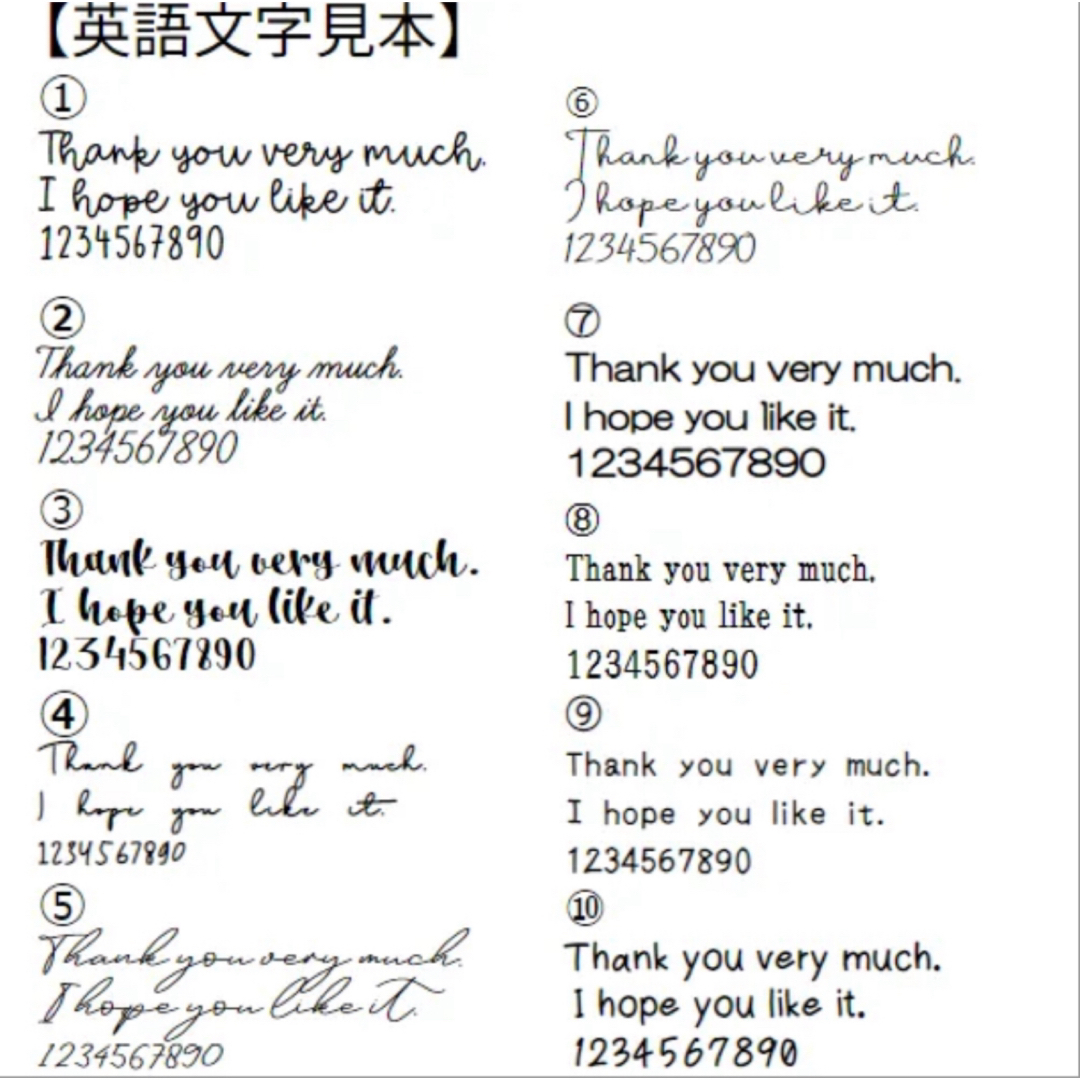 【英語文字見本】
①
Thank you very much.
I hope you like it.
1234567890
②
Thank you very much.
I hope you like it.
1234567890
③
Thank you very much.
I hope you like it.
1234567890
④
Thank you very much.
I hope you like it.
1234567890
⑤
Thank you very much.
I hope you like it.
1234567890
⑥
Thank you very much.
I hope you like it.
1234567890
⑦
Thank you very much.
I hope you like it.
1234567890
⑧
Thank you very much.
I hope you like it.
1234567890
⑨
Thank you very much.
I hope you like it.
1234567890
⑩
Thank you very much.
I hope you like it.
1234567890